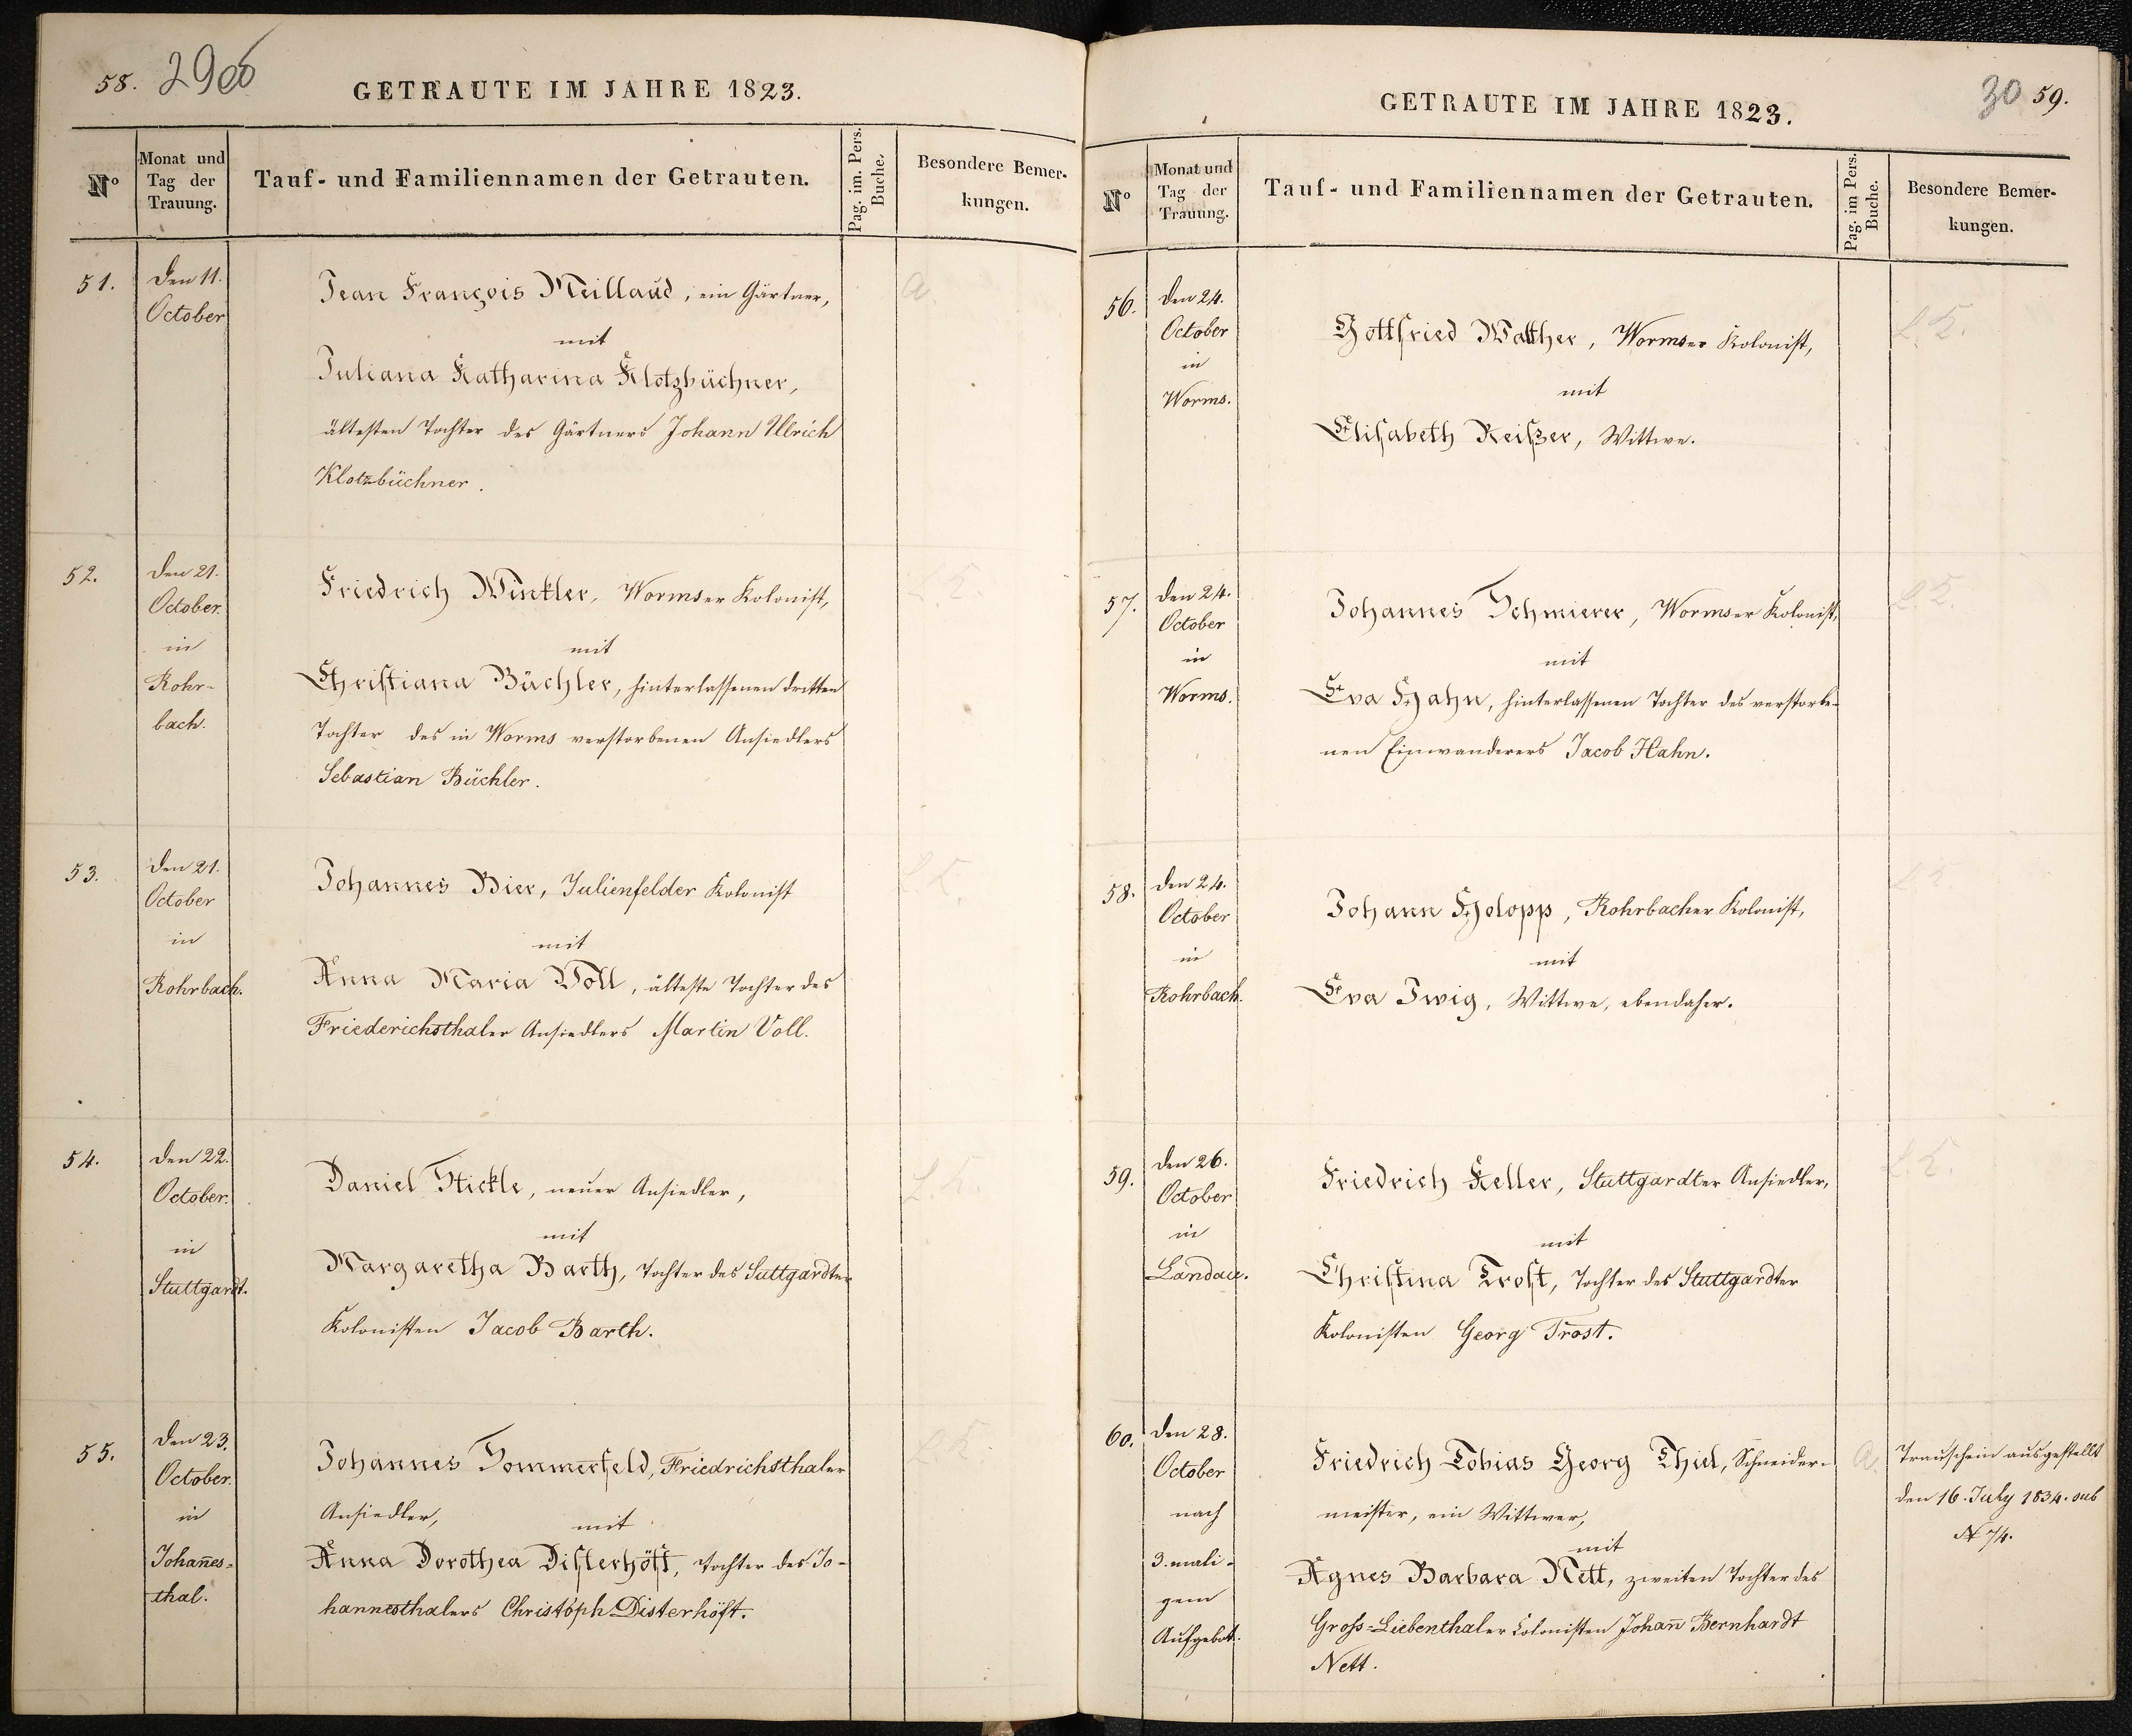 58. 29 06
GETRAUTE IM JAHRE 1823.
No
Monat und
Tag der
Trauung.
Tauf- und Familiennamen der Getrauten.
Pag. im. Pers.
Buche.
Besondere Bemer-
kungen.
51.
Den 11.
October
Jean François Meillaud, ein Gärtner,
mit
Juliana Katharina Klotzbüchner,
ältesten Tochter des Gärtners Johann Ulrich
Klotzbüchner.
a.
52.
Den 21.
October.
in
Rohr-
bach.
Friedrich Winkler, Wormser Kolonist,
mit
Christiana Büchler, hinterlassenen dritten
Tochter des in Worms verstorbenen Ansiedlers
Sebastian Büchler.
L.K.
53.
Den 21.
October
in
Rohrbach.
Johannes Bier, Julienfelder Kolonist
mit
Anna Maria Voll, älteste Tochter des
Friederichsthaler Ansiedlers Martin Voll.
L.K.
54.
Den 22.
October.
in
Stuttgardt.
Daniel Stickle, neuer Ansiedler,
mit
Margaretha Barth, Tochter des Suttgardter
Kolonisten Jacob Barth.
L.K.
55.
Den 23.
October.
in
Johan̄es-
thal.
Johannes Sommerfeld, Friedrichsthaler
Ansiedler,
mit
Anna Dorothea Disterhöft, Tochter des Jo-
hannesthalers Christoph Disterhöft.
L.K.
GETRAUTE IM JAHRE 1823.
30 59.
No
Monat und
Tag der
Trauung.
Tauf- und Familiennamen der Getrauten.
Pag. im Pers.
Buche.
Besondere Bemer-
kungen.
56.
Den 24.
October
in
Worms.
Gottfried Walther, Wormser Kolonist,
mit
Elisabeth Reißer, Wittwe.
L.K.
57.
Den 24.
October
in
Worms.
Johannes Schmierer, Wormser Kolonist,
mit
Eva Hahn, hinterlassenen Tochter des verstorbe-
nen Einwanderers Jacob Hahn.
L.K.
58.
Den 24.
October
in
Rohrbach.
Johann Holopp, Rohrbacher Kolonist,
mit
Eva Zwig, Wittwe, ebendaher.
L.K.
59.
Den 26.
October
in
Landau.
Friedrich Keller, Stuttgardter Ansiedler,
mit
Christina Trost, Tochter des Stuttgardter
Kolonisten Georg Trost.
L.K.
60.
Den 28.
October
nach
3.mali-
gem
Aufgebot.
Friedrich Tobias Georg Thiel, Schneider-
meister, ein Wittwer,
mit
Agnes Barbara Nett, zweiten Tochter des
Gross-Liebenthaler Colonisten Johan̄ Bernhardt
Nett.
a.
Trauschein ausgestellt
den 16. July 1834. sub
N 74.